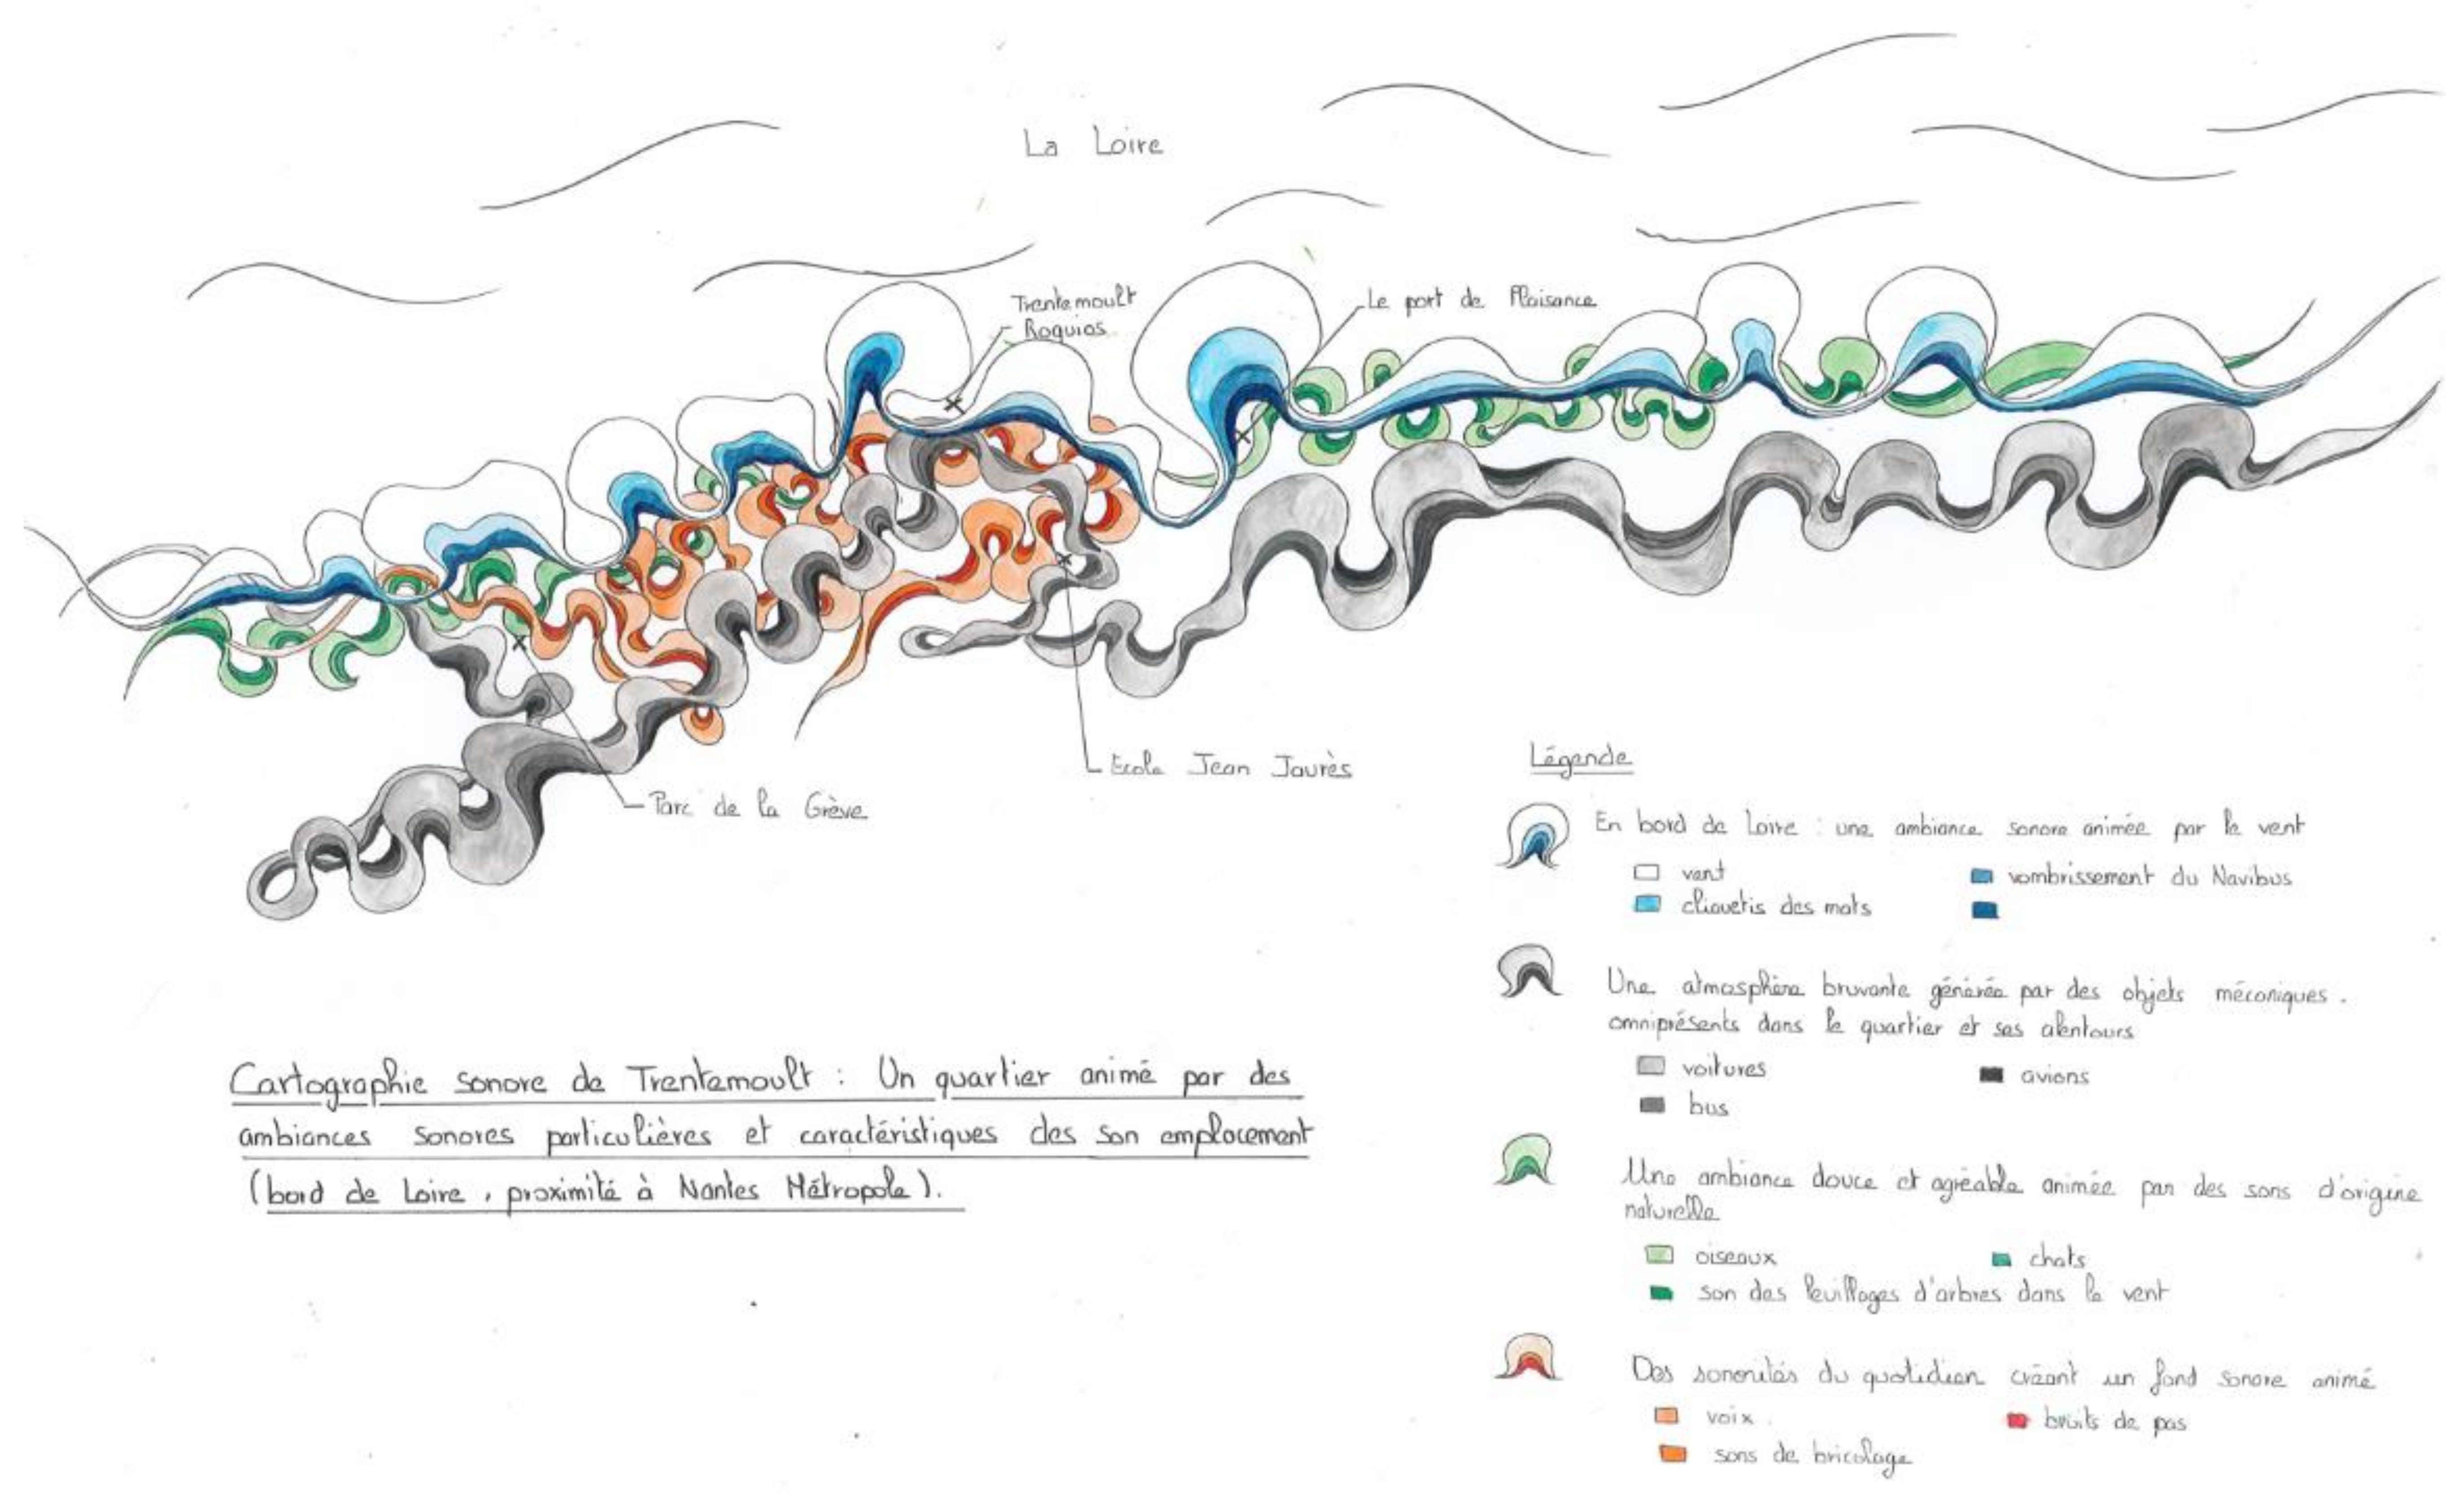 La Loire
Trentemoult
Roquios
Le port de Plaisance
Ecole Jean Jaurès
Parc de la Grève
Cartographie sonore de Trentemoult : Un quartier animé par des
ambiances sonores particulières et caractéristiques des son emplacement
(bord de Loire, proximité à Nantes Métropole).
Légende
En bord de Loire : une ambiance sonore animée par le vent
vent
vombrissement du Navibus
cliquetis des mats
Une atmosphère bruyante générée par des objets mécaniques.
omniprésents dans le quartier et ses alentours
voitures
avions
bus
Une ambiance douce et agréable animée par des sons d'origine
naturelle
oiseaux
chats
son des feuillages d'arbres dans le vent
Des sonorités du quotidien créant un fond sonore animé
voix.
bruits de pas
sons de bricolage